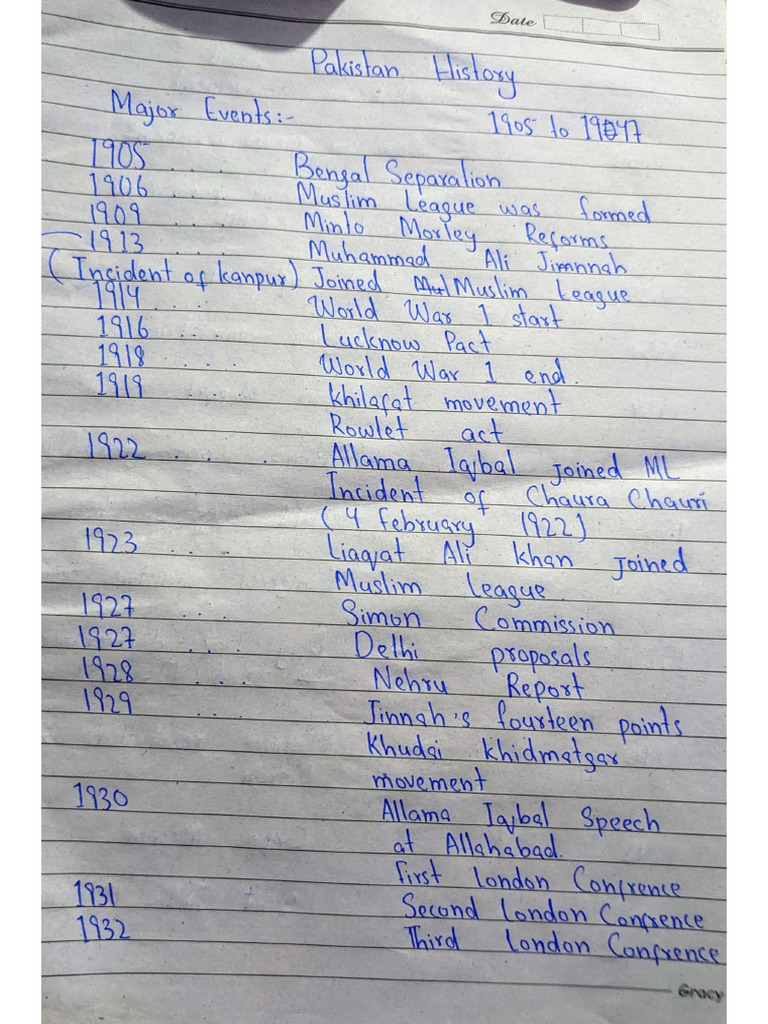 Date
Pakistan History
Major Events:- 1905 to 1947
1905 .... Bengal Separation
1906 .... Muslim League was formed
1909 .... Minto Morley Reforms
1913 .... Muhammad Ali Jimnnah
(Incident of kanpur) Joined Muslim League
1914 .... World War 1 start
1916 .... Lucknow Pact
1918 .... World War 1 end.
1919 .... khilafat movement
Rowlet act
1922 ... Allama Iqbal joined ML
Incident of Chaura Chauri
(4 february 1922)
1923 .... Liaqat Ali khan joined
Muslim League
1927 ... Simon Commission
1927 ... Delhi proposals
1928 .... Nehru Report
1929 ... Jinnah's fourteen points
Khudai khidmatgar
movement
1930 Allama Iqbal Speech
at Allahabad.
first London Confrence
1931 Second London Confrence
1932 Third London Confrence
Gracy